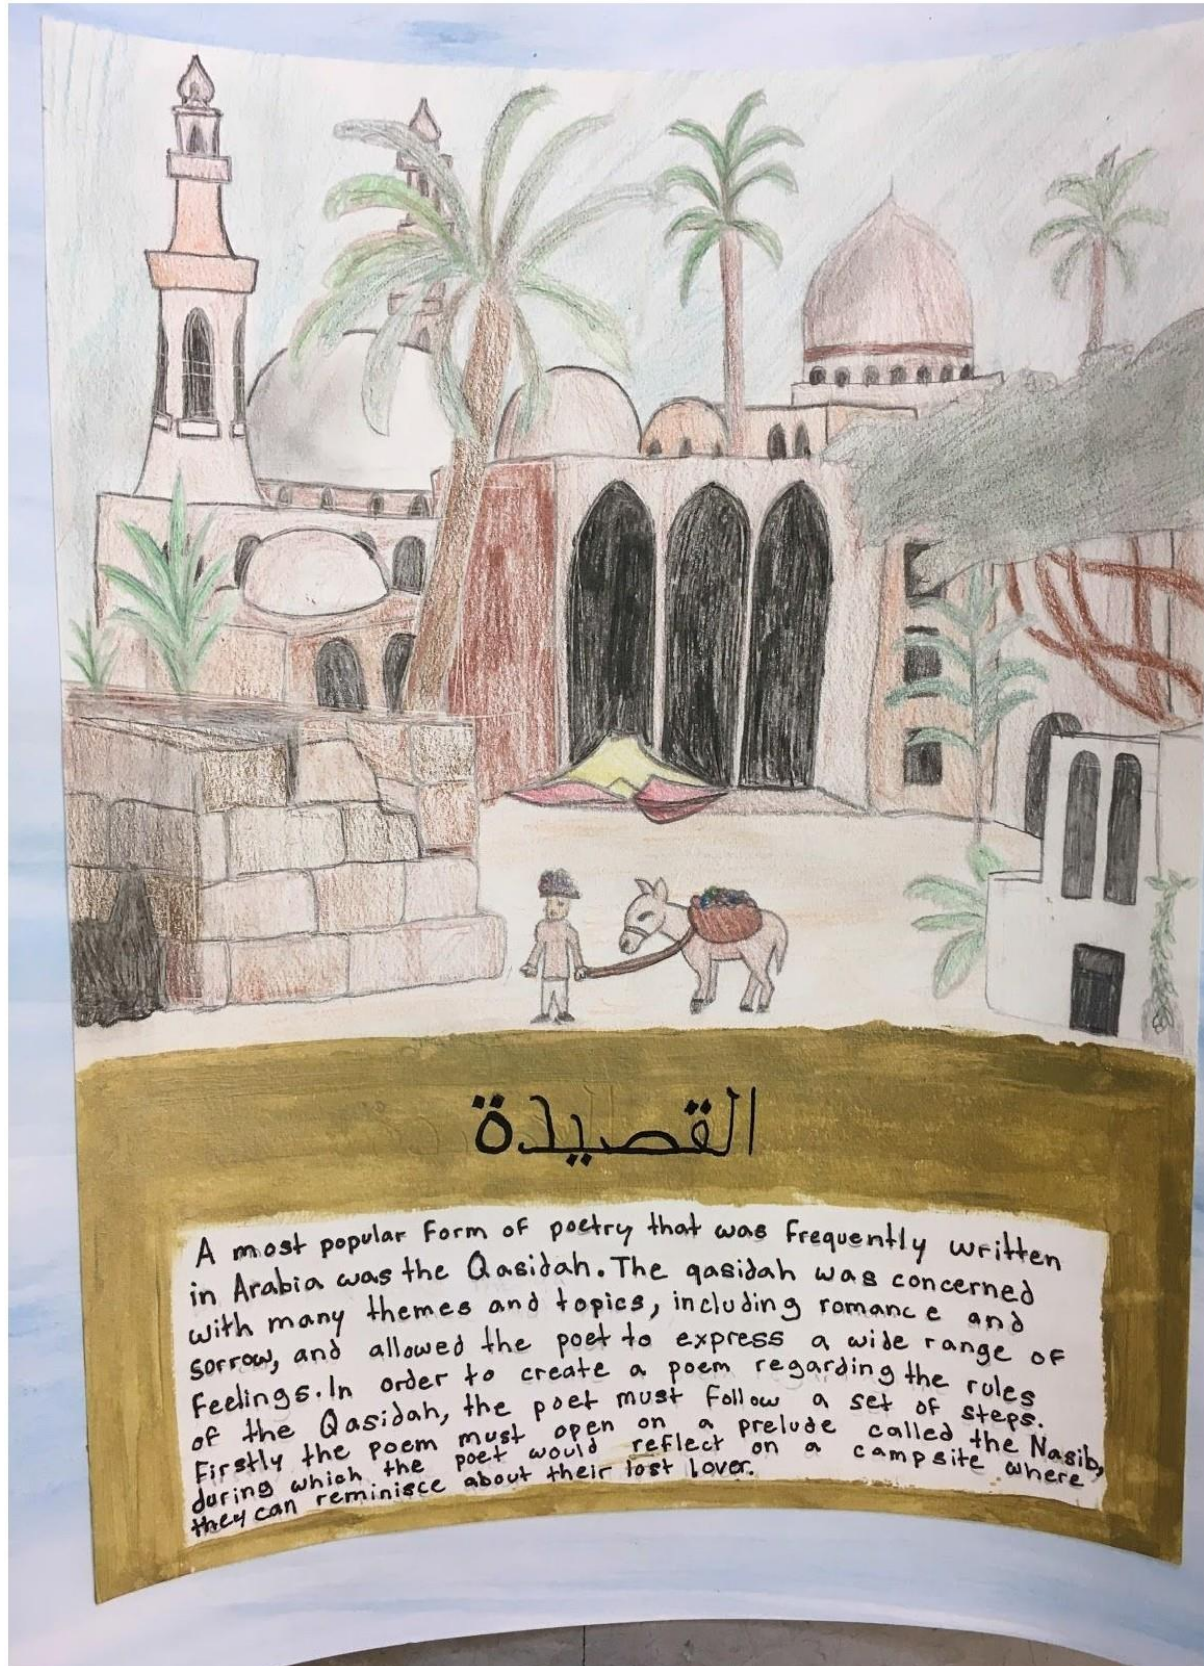 القصيدة
A most popular form of poetry that was frequently written
in Arabia was the Qasidah. The qasidah was concerned
with many themes and topics, including romance and
sorrow, and allowed the poet to express a wide range of
feelings. In order to create a poem regarding the rules
of the Qasidah, the poet must follow a set of steps.
Firstly the poem must open on a prelude called the Nasib,
during which the poet would reflect on a campsite where
they can reminisce about their lost lover.